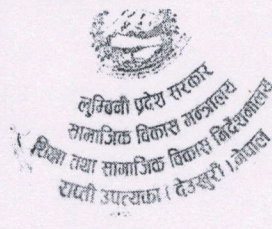 लुम्बिनी प्रदेश सरकार
सामाजिक विकास मन्त्रालय
शिक्षा तथा सामाजिक विकास निर्देशनालय
राप्ती उपत्यका ( देउखुरी ), नेपाल